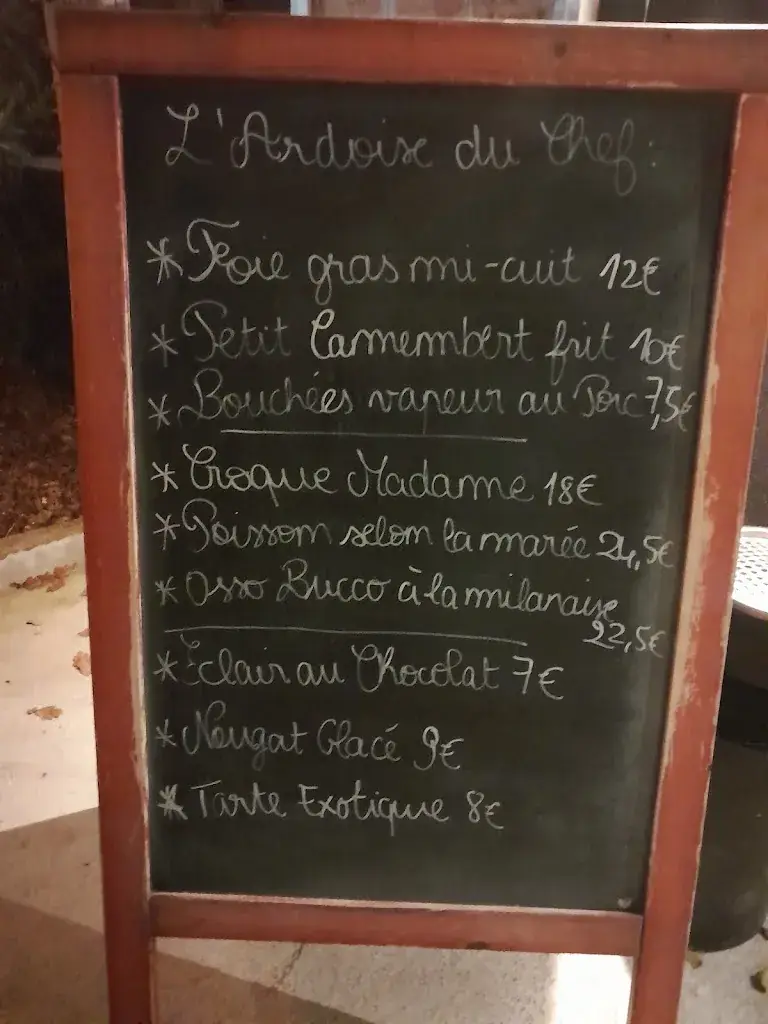 L'Ardoise du Chef :
* Foie gras mi-cuit 12€
* Petit Camembert frit 10€
* Bouchées vapeur au Porc 7,5€
* Croque Madame 18€
* Poisson selon la marée 24,5€
* Osso Bucco à la milanaise
22,5€
* Éclair au Chocolat 7€
* Nougat Glacé 9€
* Tarte Exotique 8€